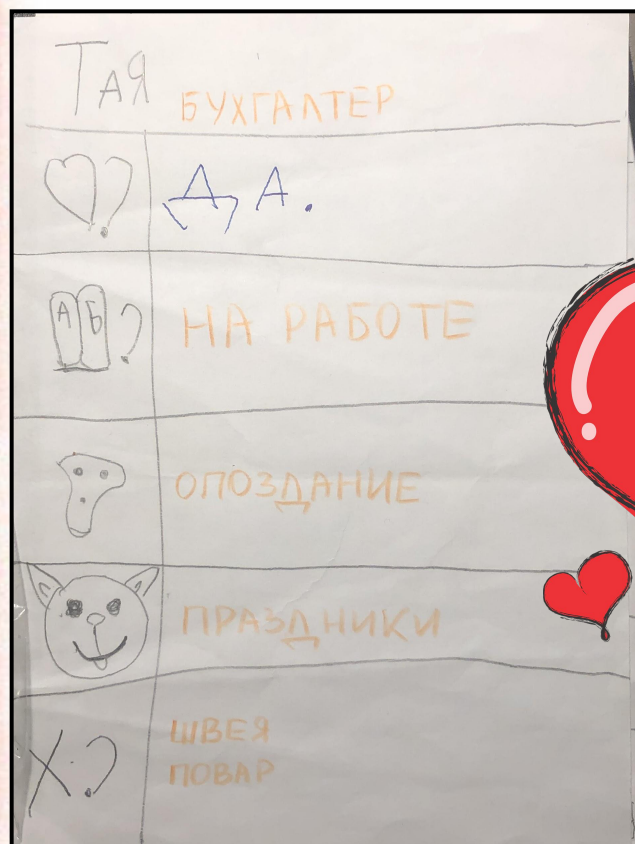 Тая
БУХГАЛТЕР
?
ДА.
А Б ?
НА РАБОТЕ
ОПОЗДАНИЕ
ПРАЗДНИКИ
Х.?
ШВЕЯ
ПОВАР